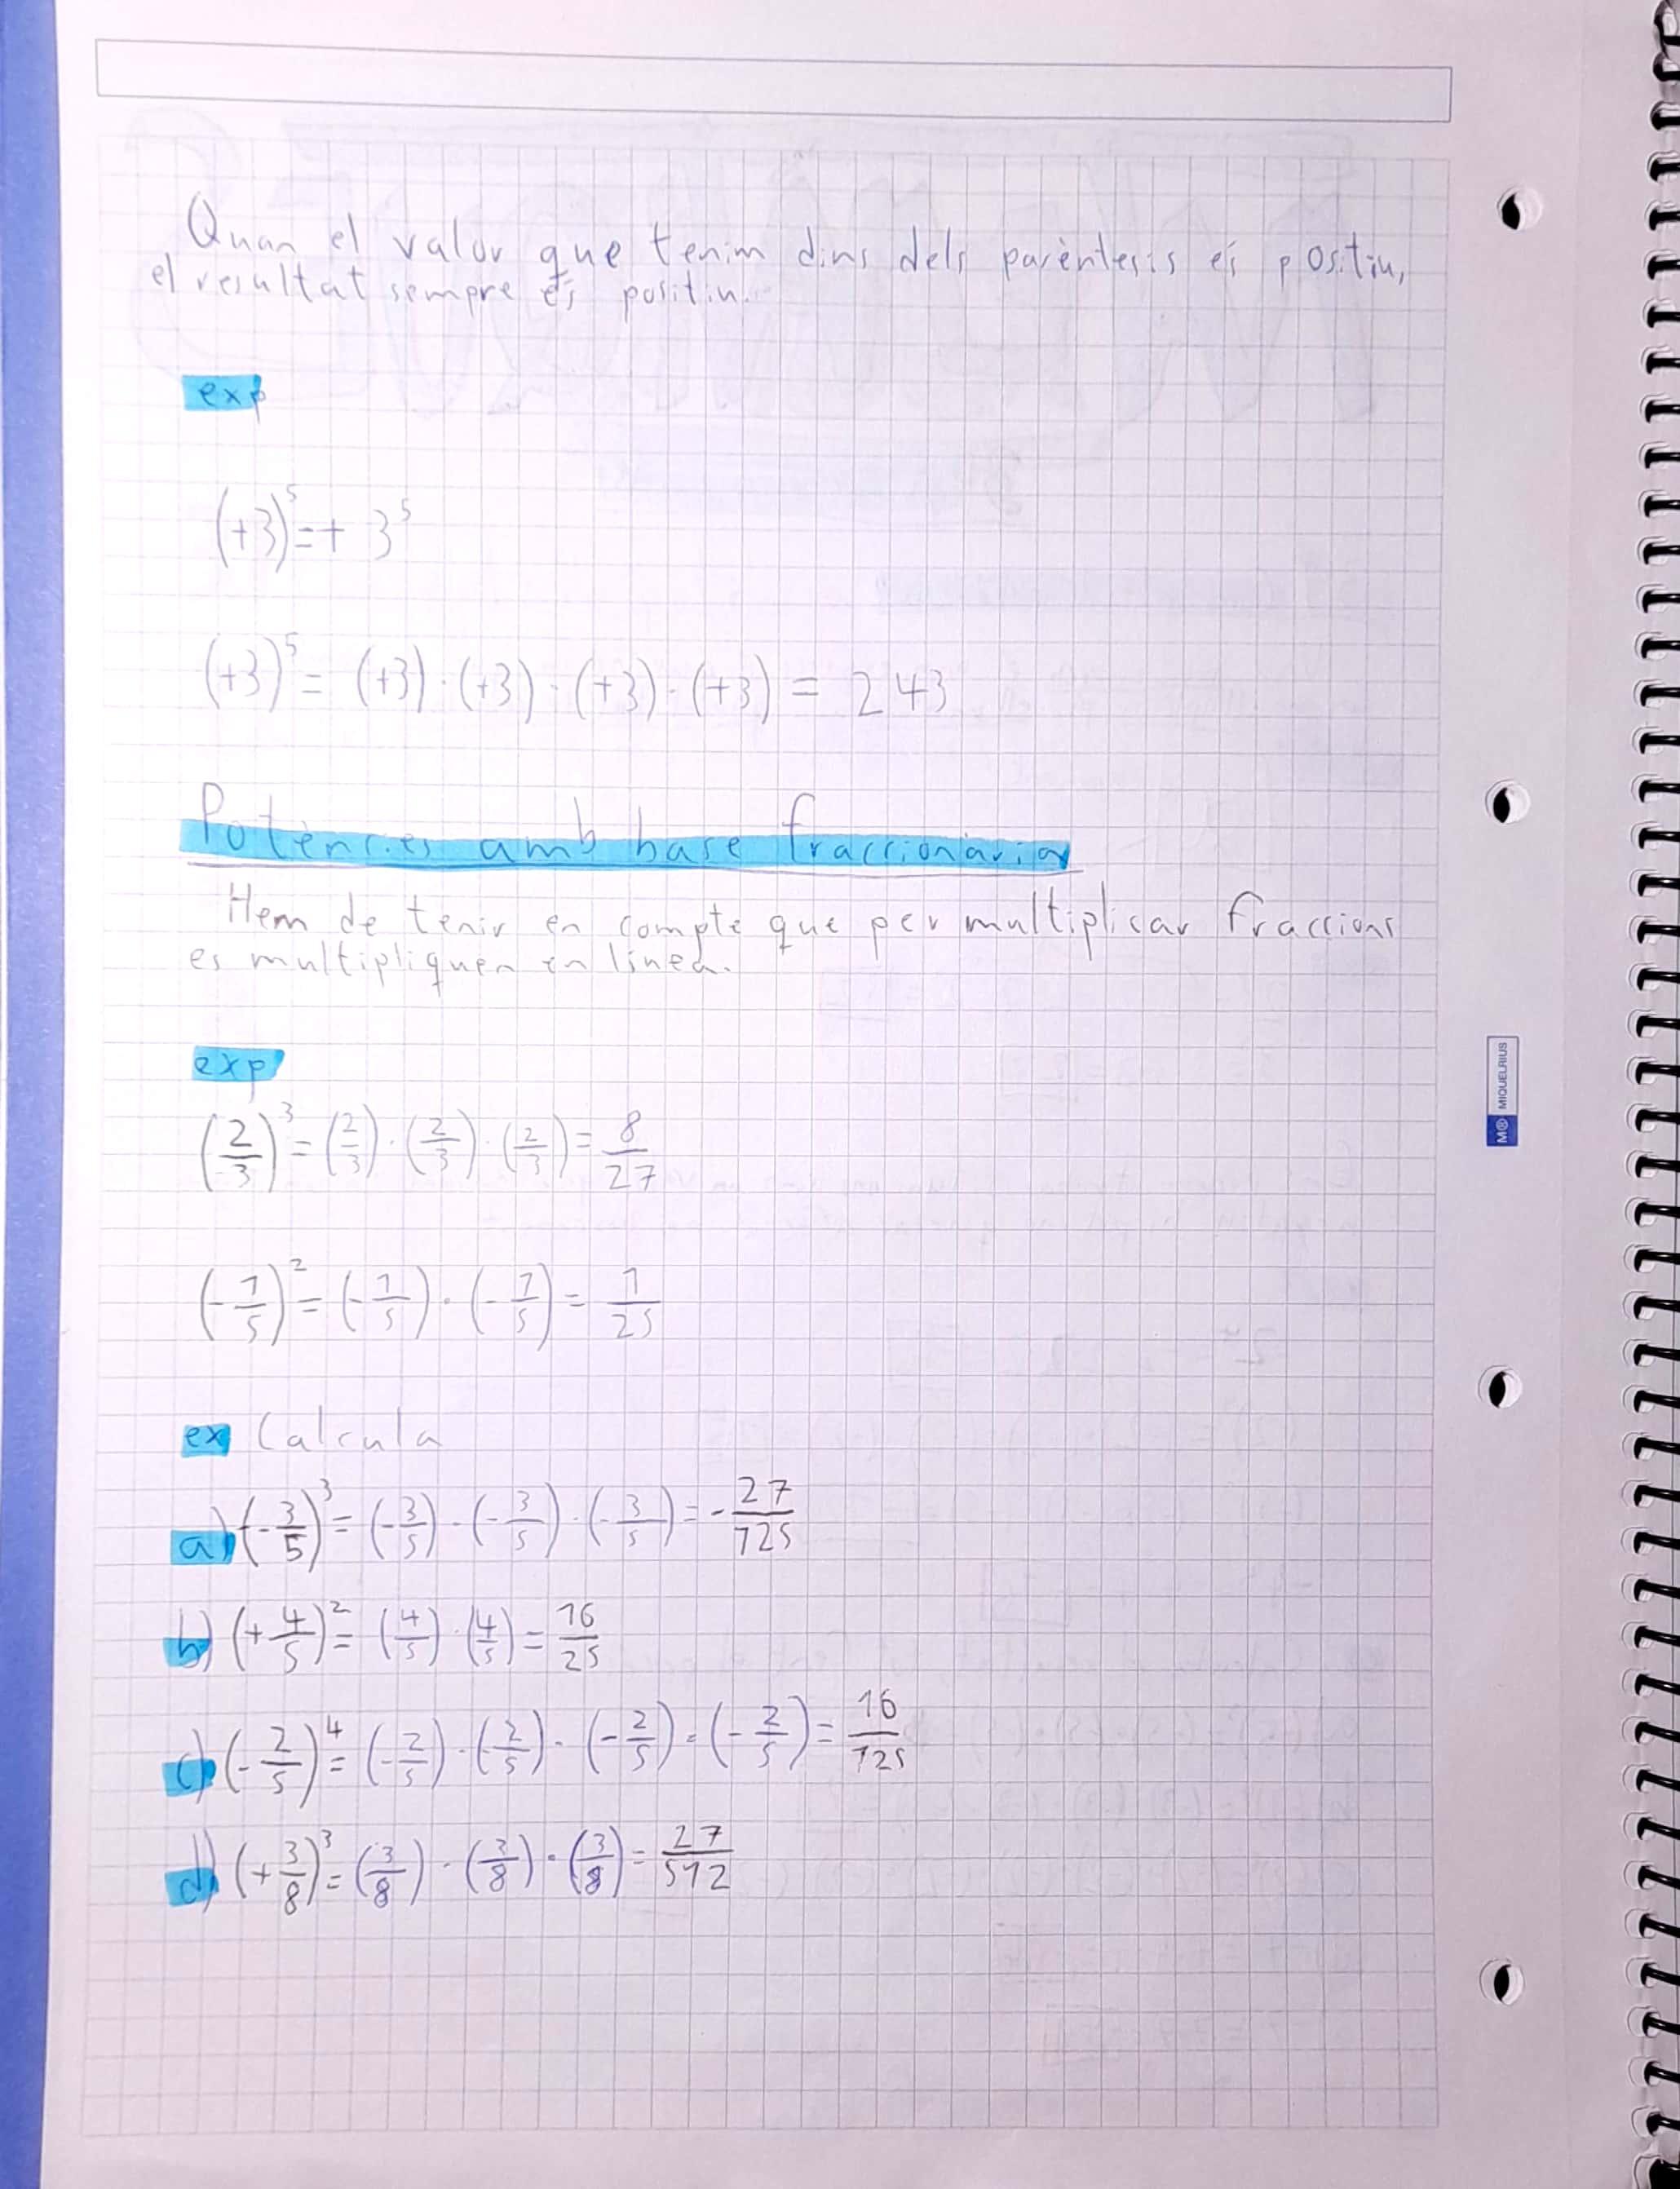 Quan el valor que tenim dins dels parèntesis és positiu,
el resultat sempre és positiu.
exp
(+3)⁵=+ 3⁵
(+3)⁵ = (+3) · (+3) · (+3) · (+3) = 243
Potències amb base fraccionària
Hem de tenir en compte que per multiplicar fraccions
es multipliquen en línea.
exp
(2/3)³ = (2/3) · (2/3) · (2/3) = 8/27
(-1/5)² = (-1/5) · (-1/5) = 1/25
ex Calcula
a) (-3/5)³ = (-3/5) · (-3/5) · (-3/5) = -27/125
b) (+4/5)² = (4/5) · (4/5) = 16/25
c) (-2/5)⁴ = (-2/5) · (-2/5) · (-2/5) · (-2/5) = 16/125
d) (+3/8)³ = (3/8) · (3/8) · (3/8) = 27/512
M® MIQUELRIUS